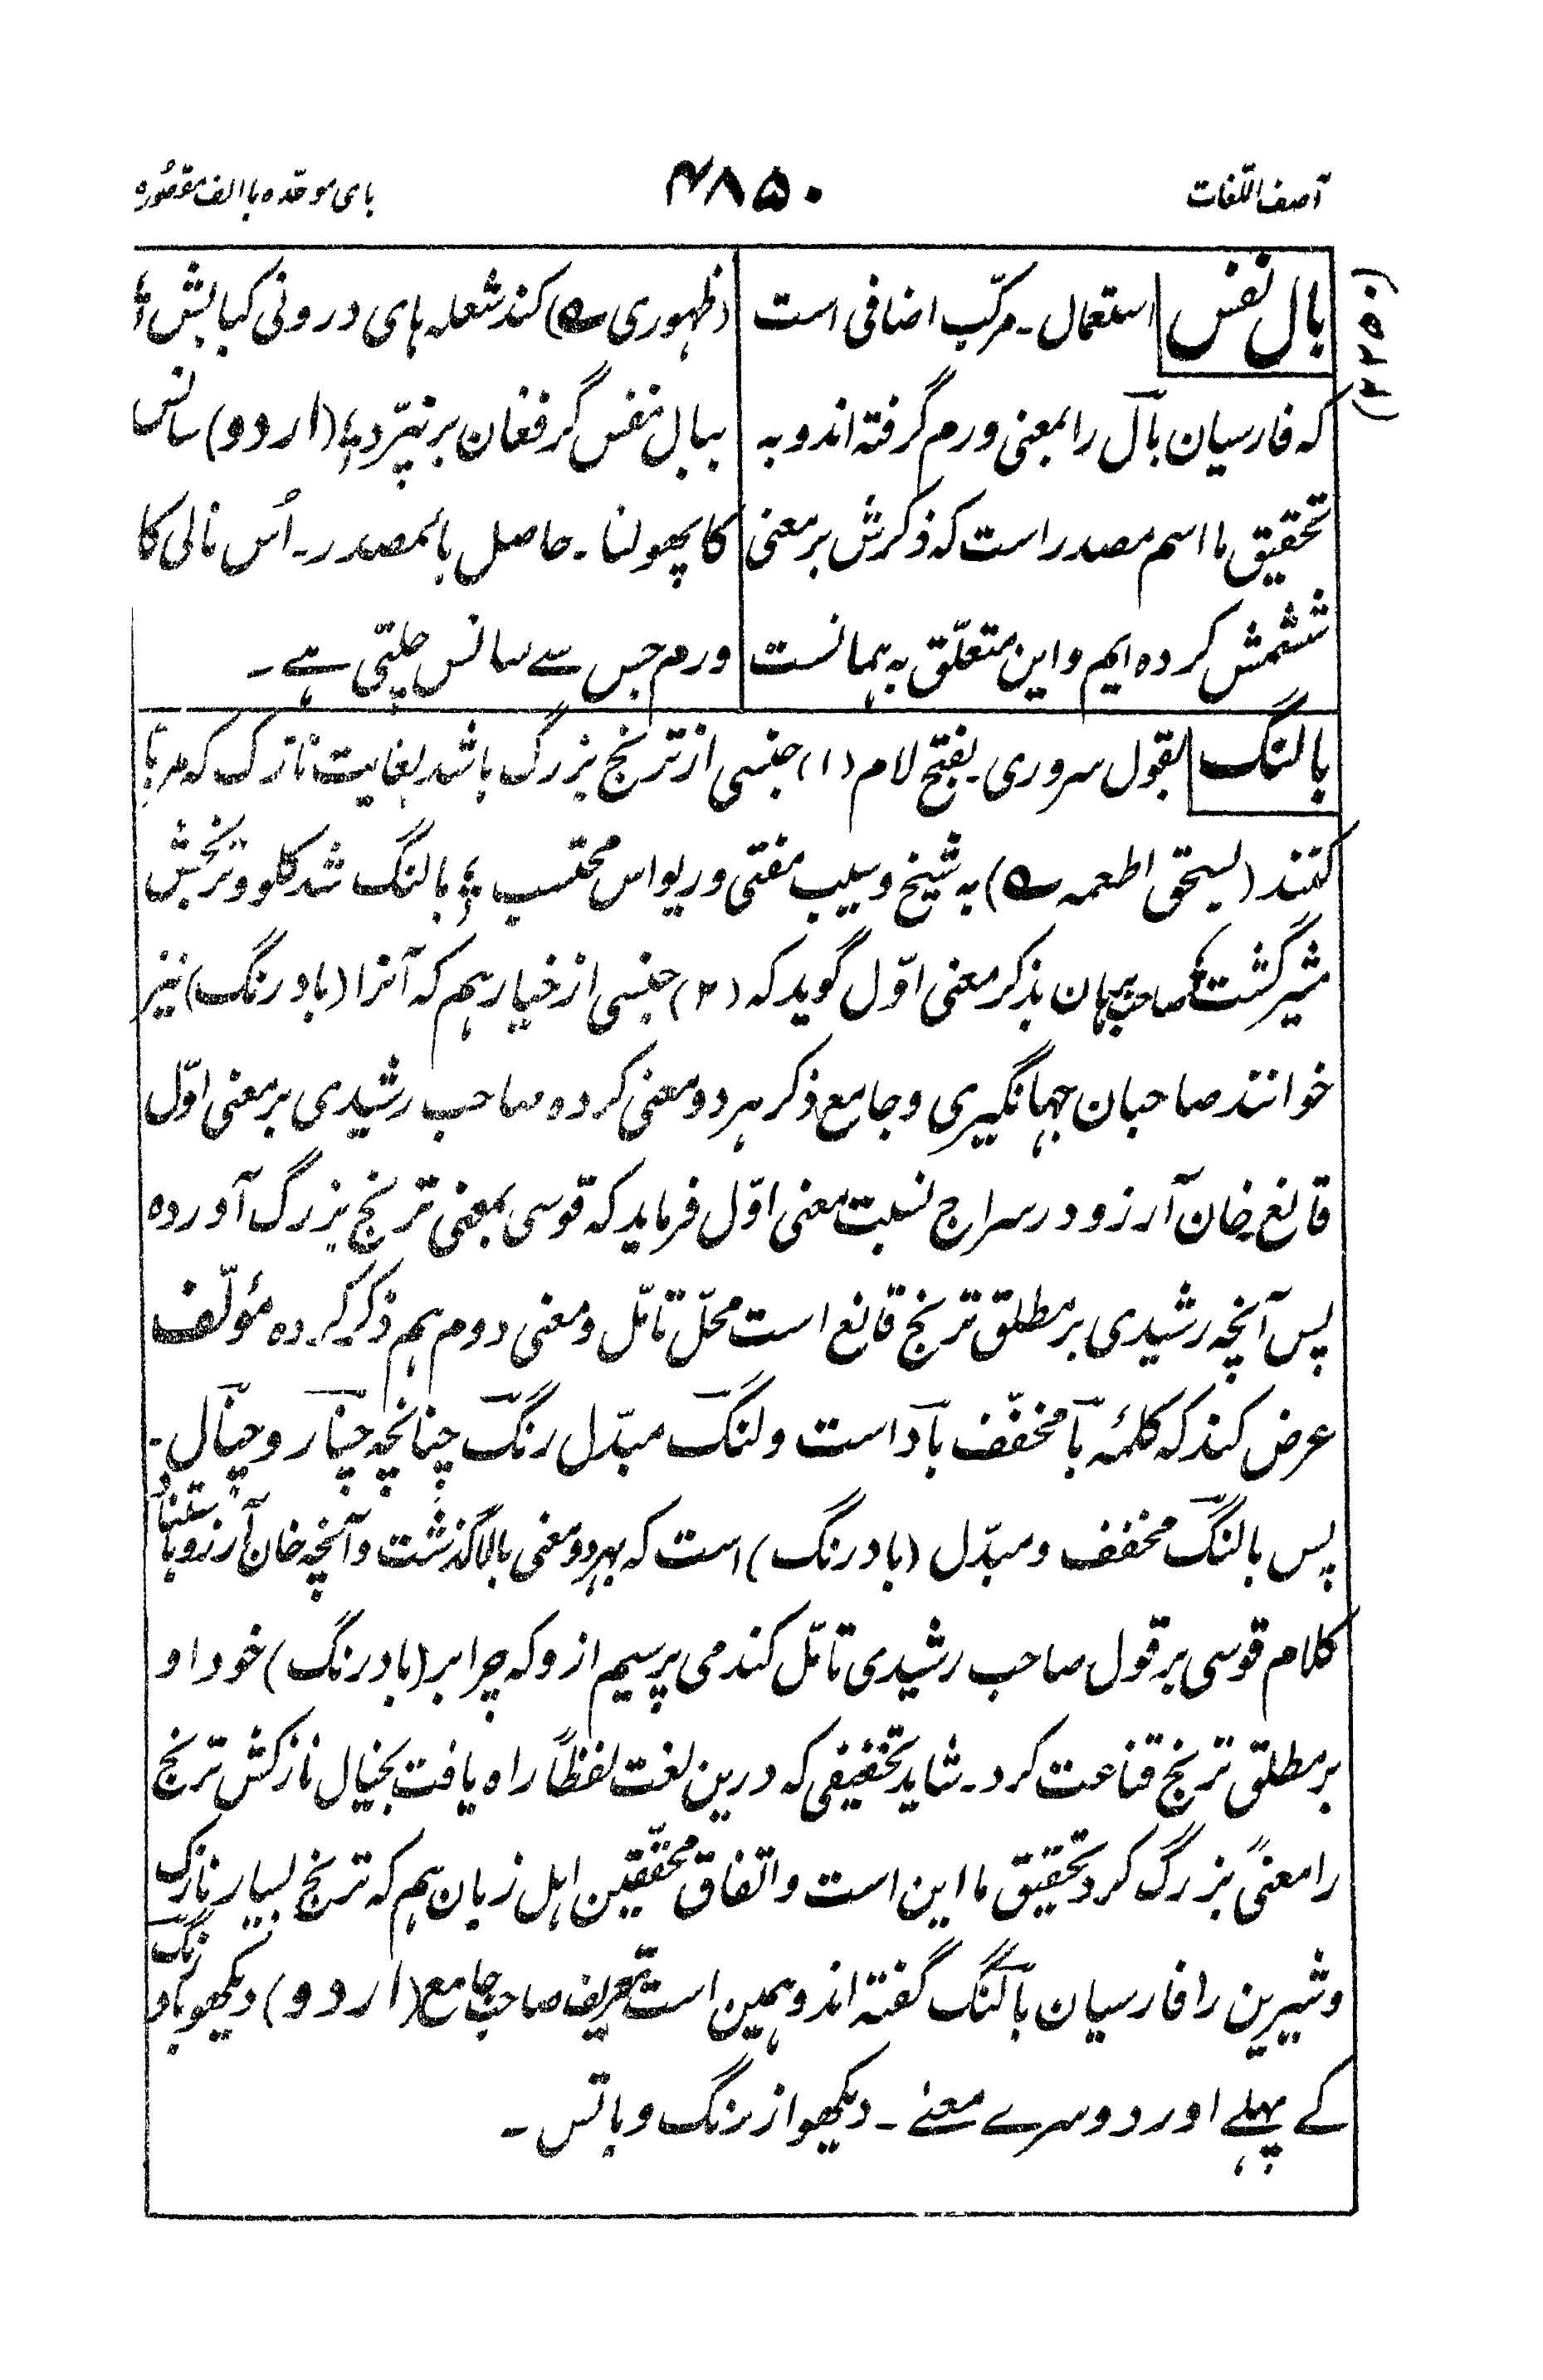 آصف اللّغات
۴۸۵۰
بای موحّدہ با الف مقصُورہ
(۲۲۵۰)
بال نفس استعمال ۔ مرکّب اضافی است
کہ فارسیان بال را بمعنی ورم گرفتہ اند و بہ
تحقیق ما اسم مصدر است کہ ذکرش بر معنی
ششمش کردہ ایم و این متعلّق بہ ہمانست
(ظہوری ؎) کند شعلہ ہای درونی کبابش ؛
ببال نفس گر فغان بر نپّرد ؛ (اردو) سانس
کا پھولنا ۔ حاصل بالمصدر ۔ اُس نالی کا
ورم جس سے سانس چلتی ہے ۔
بالنگ بقول سروری بفتح لام (۱) جنسی از ترنج بزرگ باشد بغایت نازک کہ مربّا
کنند (بسحق اطعمہ ؎) بہ شیخ و سیب مفتی و ریواس محتسب ؛ بالنگ شد کلو و ترنجش
مشیر گشت ؛ صاحب برہان بذکر معنی اوّل گوید کہ (۲) جنسی از خیار ہم کہ آنرا (بادرنگ) نیز
خوانند صاحبان جہانگیری و جامع ذکر ہر دو معنی کردہ صاحب رشیدی بر معنی اوّل
قانع خان آرزو در سراج نسبت معنی اوّل فرماید کہ قوسی بمعنی ترنج بزرگ آوردہ
پس آنچہ رشیدی بر مطلق ترنج قانع است محلّ تامّل و معنی دوم ہم ذکر کردہ مؤلّف
عرض کند کہ کلمۂ با مخفّف باد است و لنگ مبدّل رنگ چنانچہ چنار و چنال ۔
پس بالنگ مخفف و مبدّل (بادرنگ) است کہ بہر دو معنی بالا گذشت و آنچہ خان آرزو باستناد
کلام قوسی بر قول صاحب رشیدی تامّل کند می پرسیم ازو کہ چرا بر (بادرنگ) خود او
بر مطلق ترنج قناعت کرد ۔ شاید تخفیفی کہ درین لغت لفظاً راہ یافت بخیال نازکش ترنج
را معنیً بزرگ کرد تحقیق ما این است و اتفاق محقّقین اہل زبان ہم کہ ترنج بسیار نازک
و شیرین را فارسیان بالنگ گفتہ اند و ہمین است تعریف صاحب جامع (اردو) دیکھو بادرنگ
کے پہلے اور دوسرے معنے ۔ دیکھو ازرنگ و باتس ۔